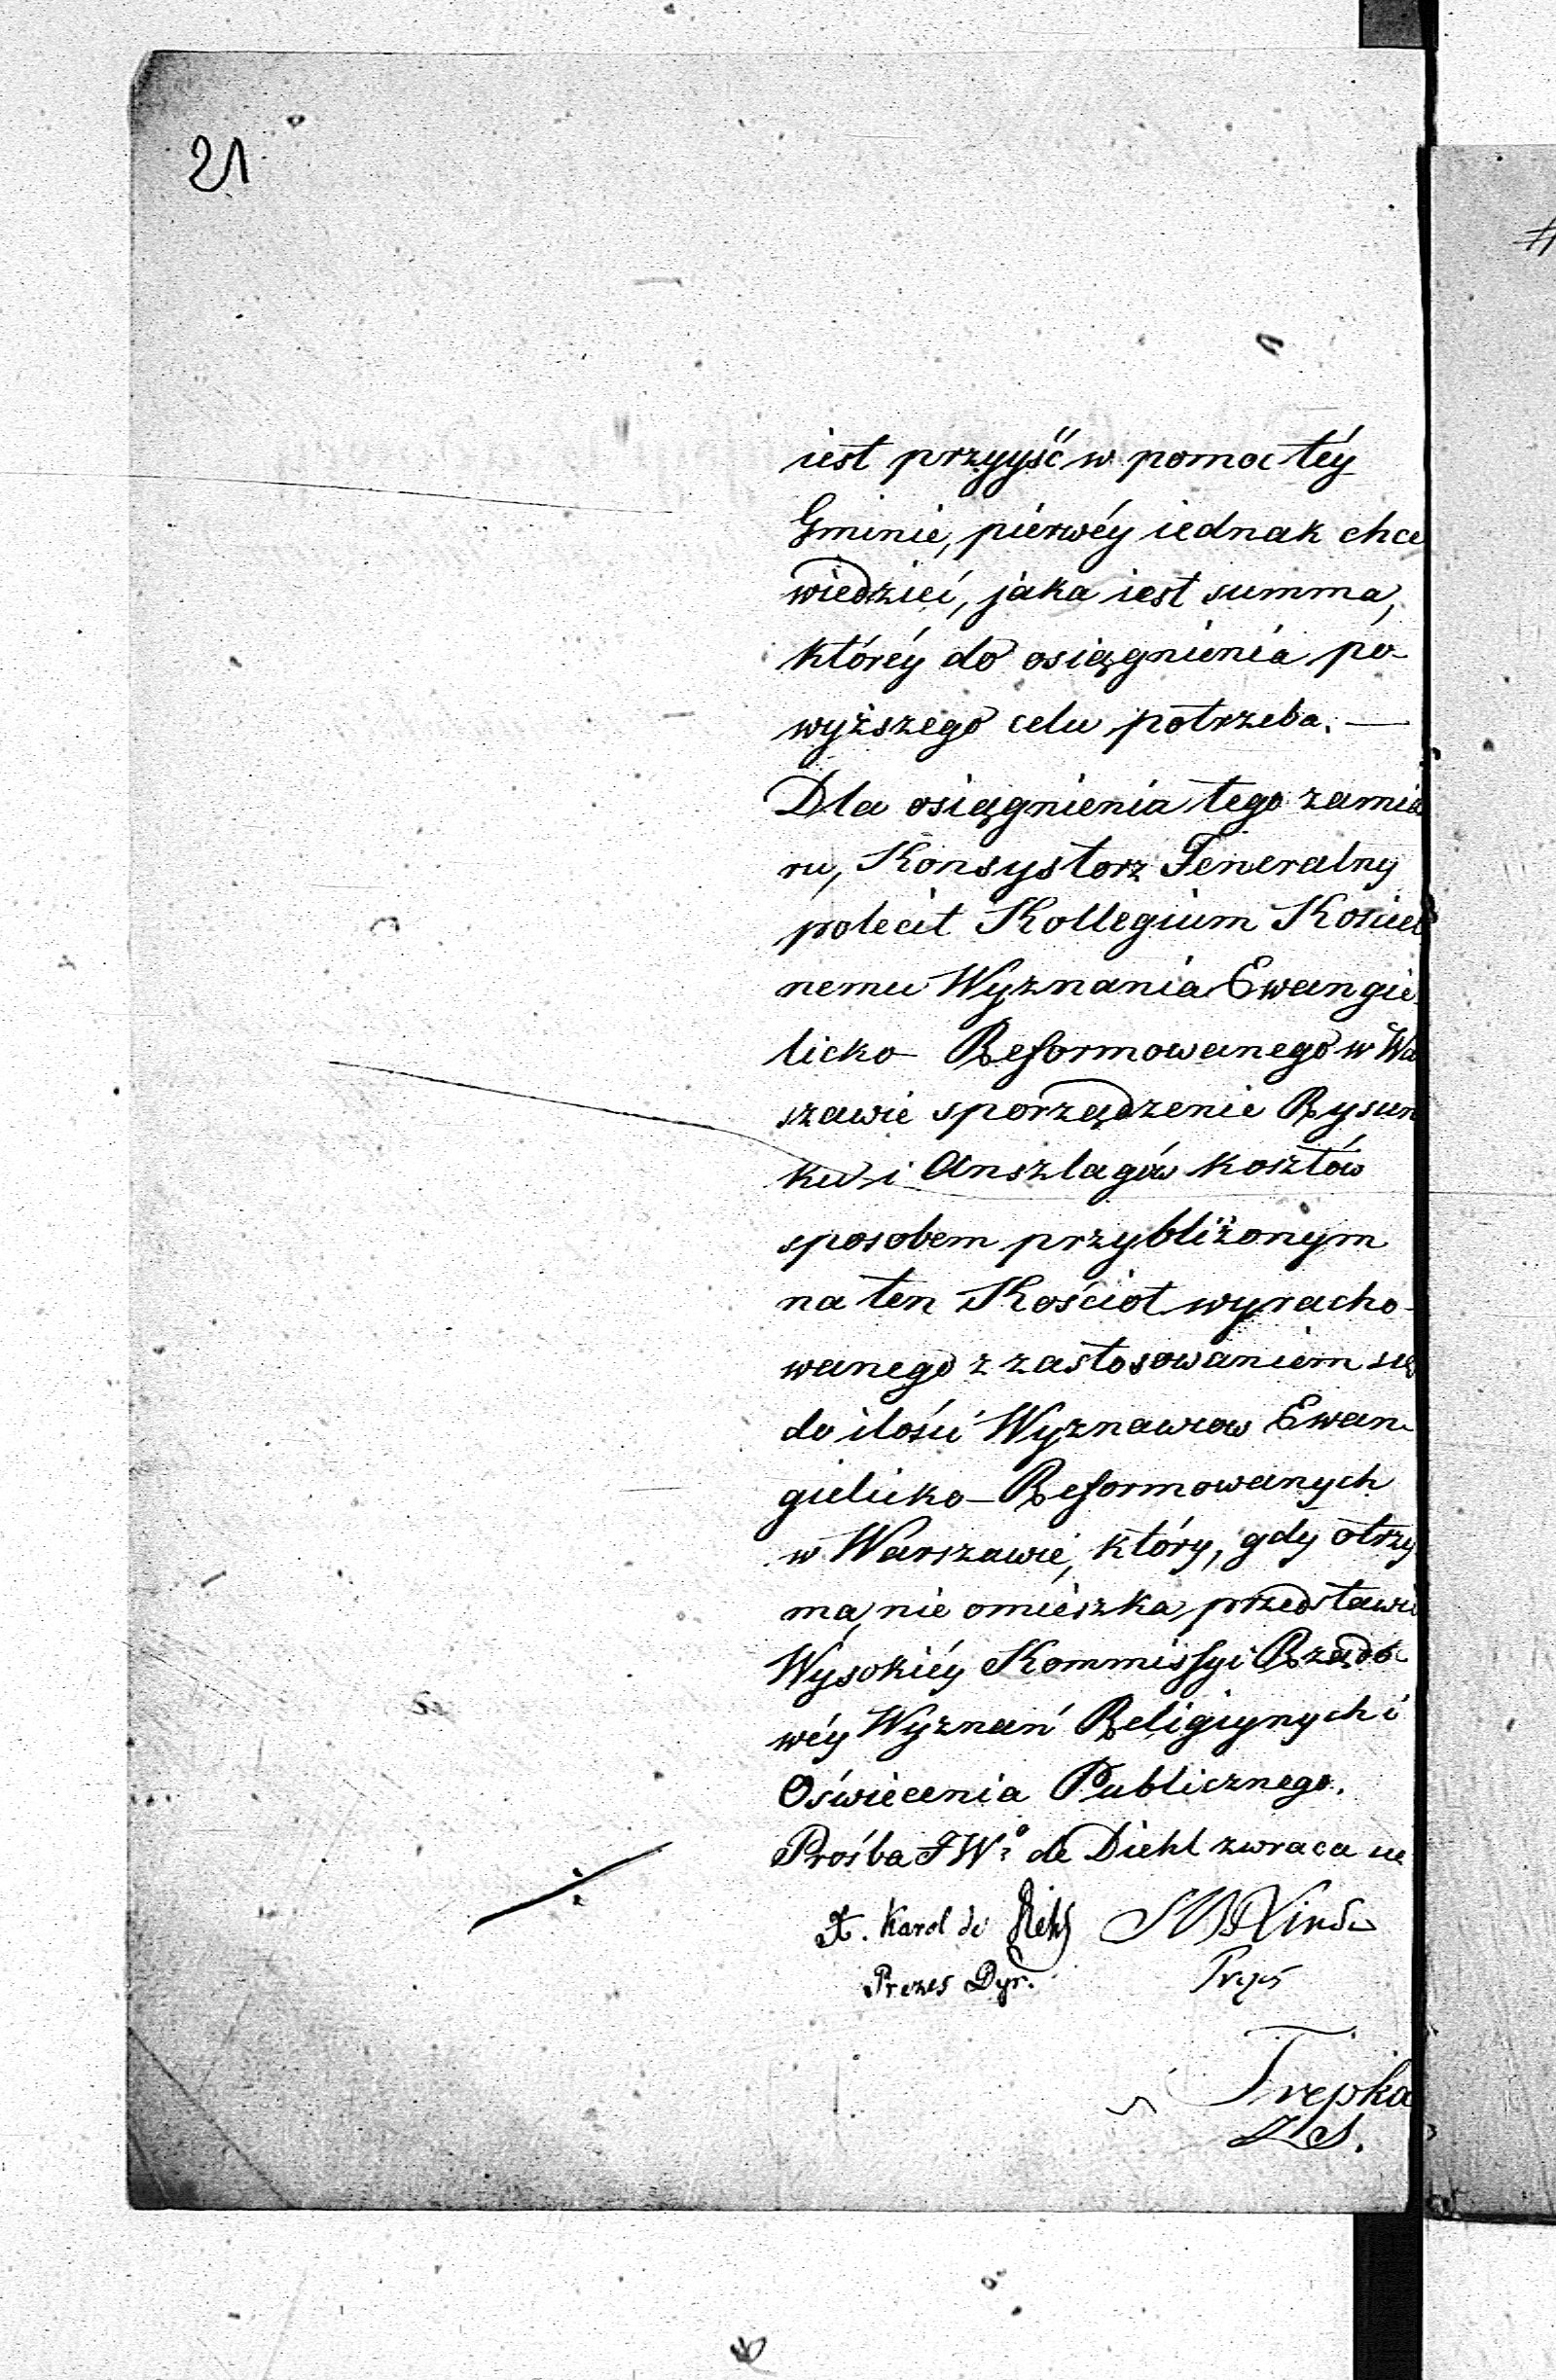 21
iest przyyść w pomoc téy
Gminie, pierwéy iednak chce
wiedzieć, jaka iest summa,
któréy do osiągnienia po-
wyższego celu potrzeba. —
Dla osiągnienia tego zamia
ru, Konsystorz Jeneralny
polecił Kollegium Kościel
nemu Wyznania Ewangie
licko - Reformowanego w Wa
szawie sporządzenie Rysun
ku i Anszlagów kosztów
sposobem przybliżonym
na ten Kościoł wyracho-
wanego z zastosowaniem się
do ilości Wyznawcow Ewan-
gielicko - Reformowanych
w Warszawie, który, gdy otrzy
ma, nie omieszka przedstawić
Wysokiéy Kommissyi Rządo-
wéy Wyznań Religiynych i
Oświecenia Publicznego.
Prośba JWo de Diehl zwraca się
X. Karol de Diehl
Prezes Dyr. Prezes
Trepka
Z S.